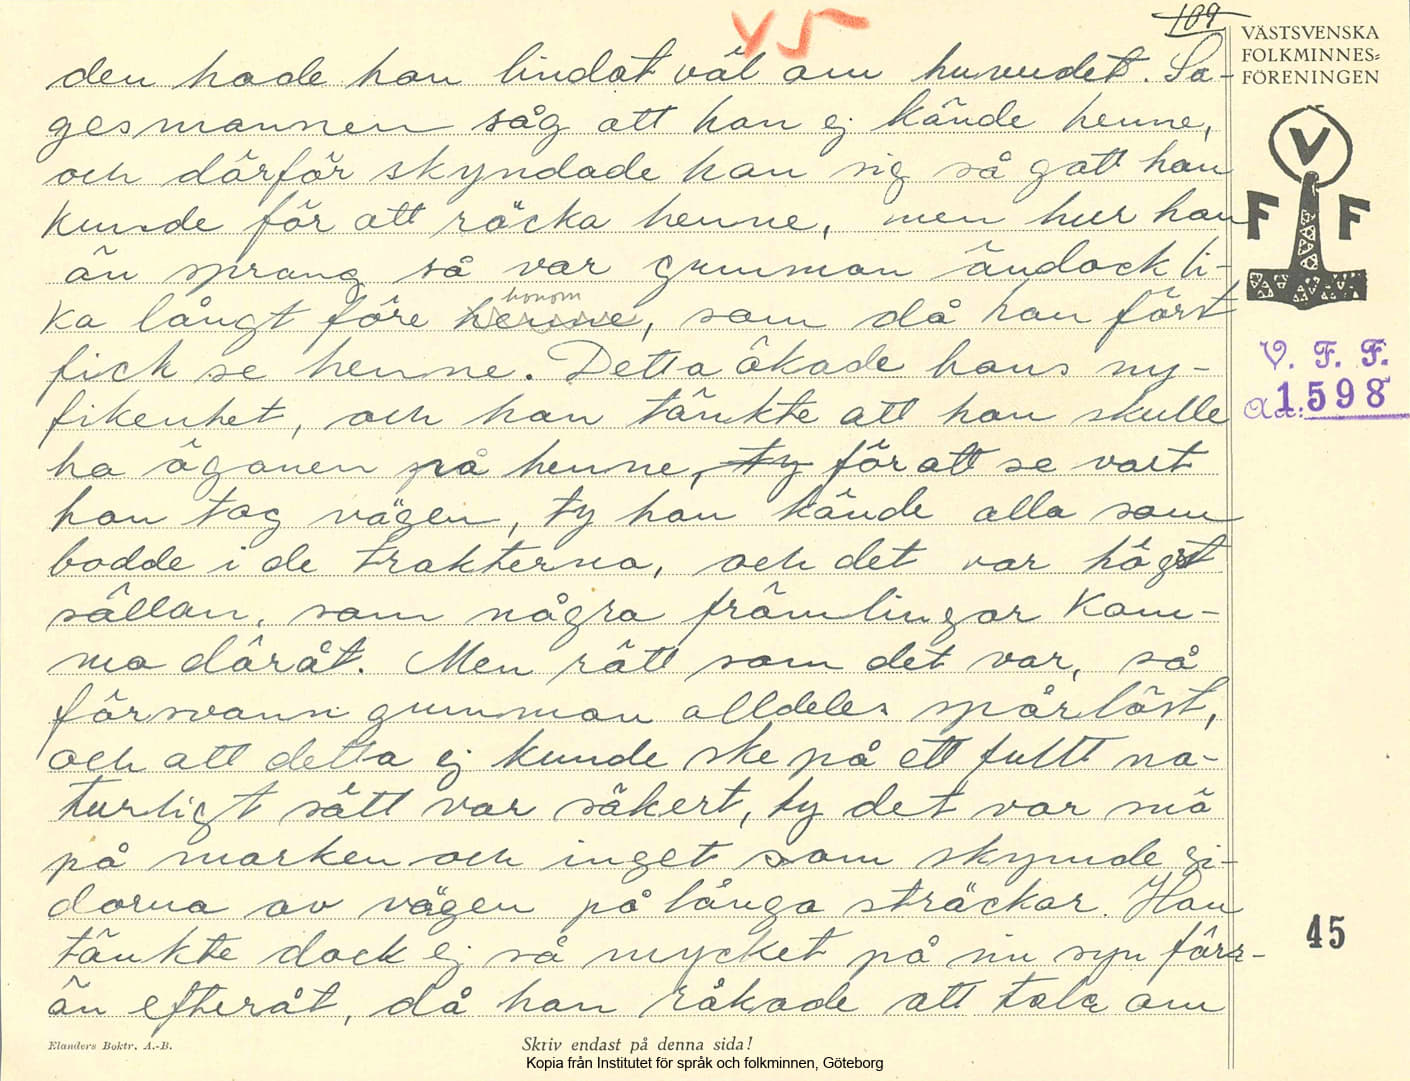 109
45
VÄSTSVENSKA
FOLKMINNES=
FÖRENINGEN
V
F F
V. F. F.
Acc: 1598
45
den hade hon lindat väl om huvudet. Sa-
gesmannen såg att han ej kände henne,
och därför skyndade han sig så gott han
kunde för att räcka henne, men hur han
än sprang så var gumman ändock li-
honom
ka långt före henne, som då han först
fick se henne. Detta ökade hans ny-
fikenhet, och han tänkte att han skulle
ha ögonen på henne, ty för att se vart
hon tog vägen, ty han kände alla som
bodde i de trakterna, och det var högst
sällan, som några främlingar kom-
mo däråt. Men rätt som det var, så
försvann gumman alldeles spårlöst,
och att detta ej kunde ske på ett fullt na-
turligt sätt var säkert, ty det var snö
på marken och inget som skymde si-
dorna av vägen på långa sträckor. Han
tänkte dock ej så mycket på sin syn förr-
än efteråt, då han råkade att tala om
Elanders Boktr. A.-B.
Skriv endast på denna sida!
Kopia från Institutet för språk och folkminnen, Göteborg